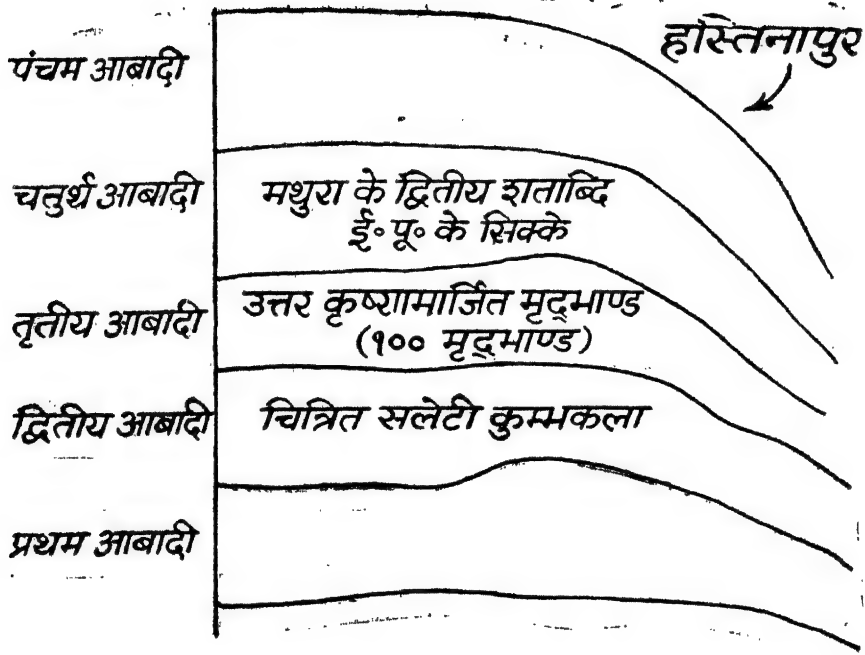 हस्तिनापुर
पंचम आबादी
चतुर्थ आबादी
मथुरा के द्वितीय शताब्दि
ई॰ पू॰ के सिक्के
तृतीय आबादी
उत्तर कृष्णमार्जित मृद्भाण्ड
(१०० मृद्भाण्ड)
द्वितीय आबादी
चित्रित सलेटी कुम्भकला
प्रथम आबादी